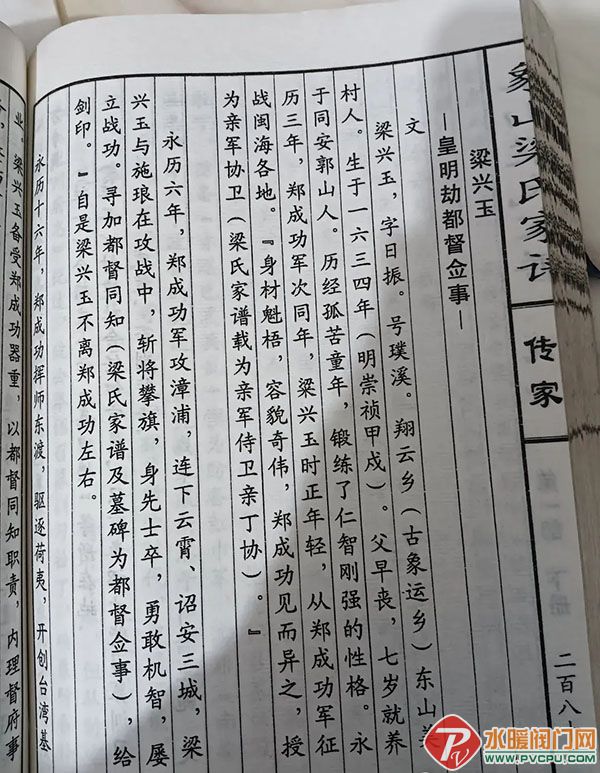 梁兴玉
—皇明劫都督佥事—
文
梁兴玉，字日振。号璞溪。翔云乡（古象运乡）东山美
村人。生于一六三四年（明崇祯甲戍）。父早丧，七岁就养
于同安郭山人。历经孤苦童年，锻练了仁智刚强的性格。永
历三年，郑成功军次同年，梁兴玉时正年轻，从郑成功军征
战闽海各地。『身材魁梧，容貌奇伟，郑成功见而异之，授
为亲军协卫（梁氏家谱载为亲军侍卫亲丁协）。』
永历六年，郑成功军攻漳浦，连下云霄、诏安三城，梁
兴玉与施琅在攻战中，斩将攀旗，身先士卒，勇敢机智，屡
立战功。寻加都督同知（梁氏家谱及墓碑为都督佥事），给
剑印。』自是梁兴玉不离郑成功左右。
永历十六年，郑成功挥师东渡，驱逐荷夷，开创台湾基
业。梁兴玉备受郑成功器重，以都督同知职责，内理督府事
象山梁氏家谱
传家
二百八十
水暖阀门网
WWW.PVCPU.COM
PV